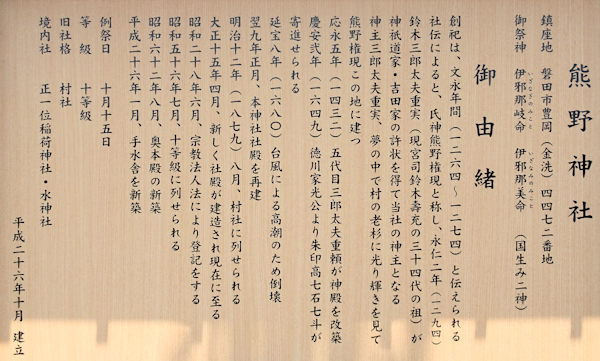 熊野神社
鎮座地 磐田市豊岡(金洗)四四七二番地
御祭神 伊邪那岐命 伊邪那美命 (国生み二神)
いざなぎのみこと いざなみのみこと
御由緒
創祀は、文永年間(一二六四~一二七四)と伝えられる
社伝によると、氏神熊野権現と称し、永仁二年(一二九四)
鈴木三郎太夫重実(現宮司鈴木寿充の三十四代の祖)が
神祇道家・吉田家の許状を得て当社の神主となる
神主三郎太夫重実、夢の中で村の老杉に光り輝きを見て
熊野権現この地に建つ
応永五年(一四三二)五代目三郎太夫重頼が神殿を改築
慶安弐年(一六四九)徳川家光公より朱印高七石七斗が
寄進せられる
延宝八年(一六八〇)台風による高潮のため倒壊
翌九年正月、本神社社殿を再建
明治十二年(一八七九)八月、村社に列せられる
大正十五年四月、新しく社殿が建造され現在に至る
昭和二十八年六月、宗教法人法により登記をする
昭和五十六年七月、十等級に列せられる
昭和六十二年八月、奥本殿の新築
平成二十六年一月、手水舎を新築
例祭日 十月十五日
等級 十等級
旧社格 村社
境内社 正一位稲荷神社・水神社
平成二十六年十月 建立